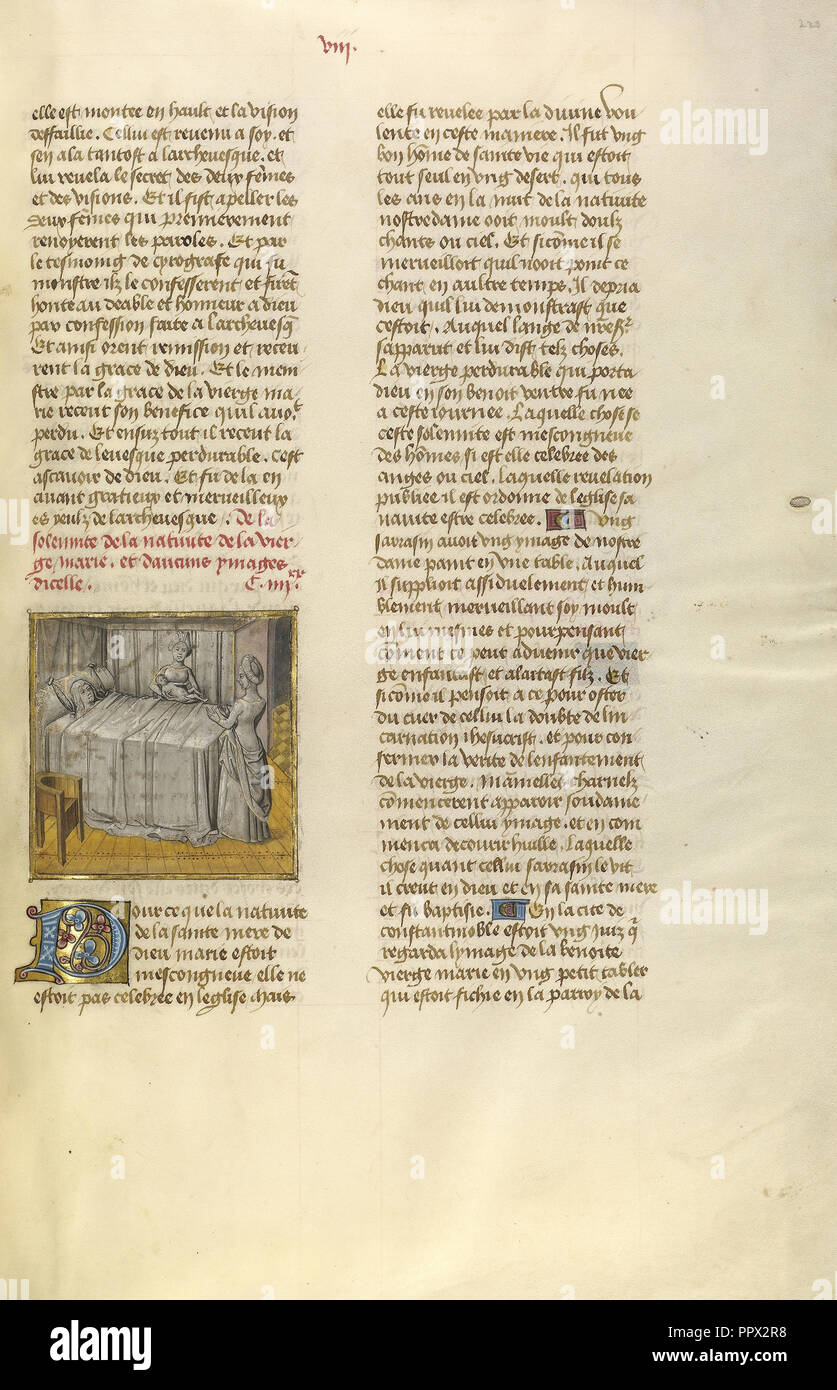 220
viii.
elle est montee en hault et la vision
deffaillie. Cellui est revenu a soy. et
sen ala tantost a larchevesque. et
lui revela le secret des deux fēmes
et des visions. Et il fist apeller les
deux fēmes qui premierement
renoyerent les paroles. Et par
le tesmoing de cyrografe qui fu
monstre ilz le confesserent et furēt
honte au deable et honneur a dieu
par confession faite a larchevesq̄
Et ainsi orent remission et receu
rent la grace de dieu. Et le men
stre par la grace de la vierge ma
rie receut son benefice quil avoit
perdu. Et ensuz tout il receut la
grace de levesque perdurable. Cest
ascavoir de dieu. Et fu de la en
avant gratieux et merveilleux
es yeulz de larchevesque. De la
solennite de la nativite de la vier
ge marie. et daucuns ymages
dicelle. C. iiii xx.
Pour ce que la nativite
de la sainte mere de
dieu marie estoit
mescongneue elle ne
estoit pas celebree en leglise mais
elle fu revelee par la divine vou
lente en ceste maniere. Il fut ung
bon hōme de sainte vie qui estoit
tout seul en ung desert. qui tous
les ans en la nuit de la nativite
nostredame ooit moult doulz
chants ou ciel. Et si cōme il se
merveilloit quil nooit point ce
chant en aultre temps. Il depria
dieu quil lui demonstrast que
cestoit. Auquel lange de nr̄eseigr̄
sapparut et lui dist telz choses.
La vierge perdurable qui porta
dieu en son benoit ventre fu nee
a ceste iournee. Laquelle chose se
ceste solennite est mescongneue
des hōmes si est elle celebree des
anges ou ciel. laquelle revelation
publiee il est ordonne de leglise sa
nativite estre celebree. Ung
sarrasin avoit ung ymage de nostre
dame paint en une table. Auquel
il supplioit assiduelement et hum
blement merveillant soy moult
en lui mesmes et pourpensant
cōment ce peut advenir que vier
ge enfantast et alaitast filz. Et
si cōme il pensoit a ce pour oster
du cuer de cellui la doubte de lin
carnation ihesucrist. et pour con
fermer la verite de lenfantement
de la vierge. Mamelles charnelz
cōmencerent apparoir soudaine
ment de cellui ymage. et en com
menca decourir huille. Laquelle
chose quant cellui sarrasin le vit
il creut en dieu et en sa sainte mere
et fu baptisie. En la cite de
constantinoble estoit ung juiz q̄
regarda lymage de la benoite
vierge marie en ung petit tablier
qui estoit fichie en la parroy de la
alamy
Image ID: PPX2R8
www.alamy.com